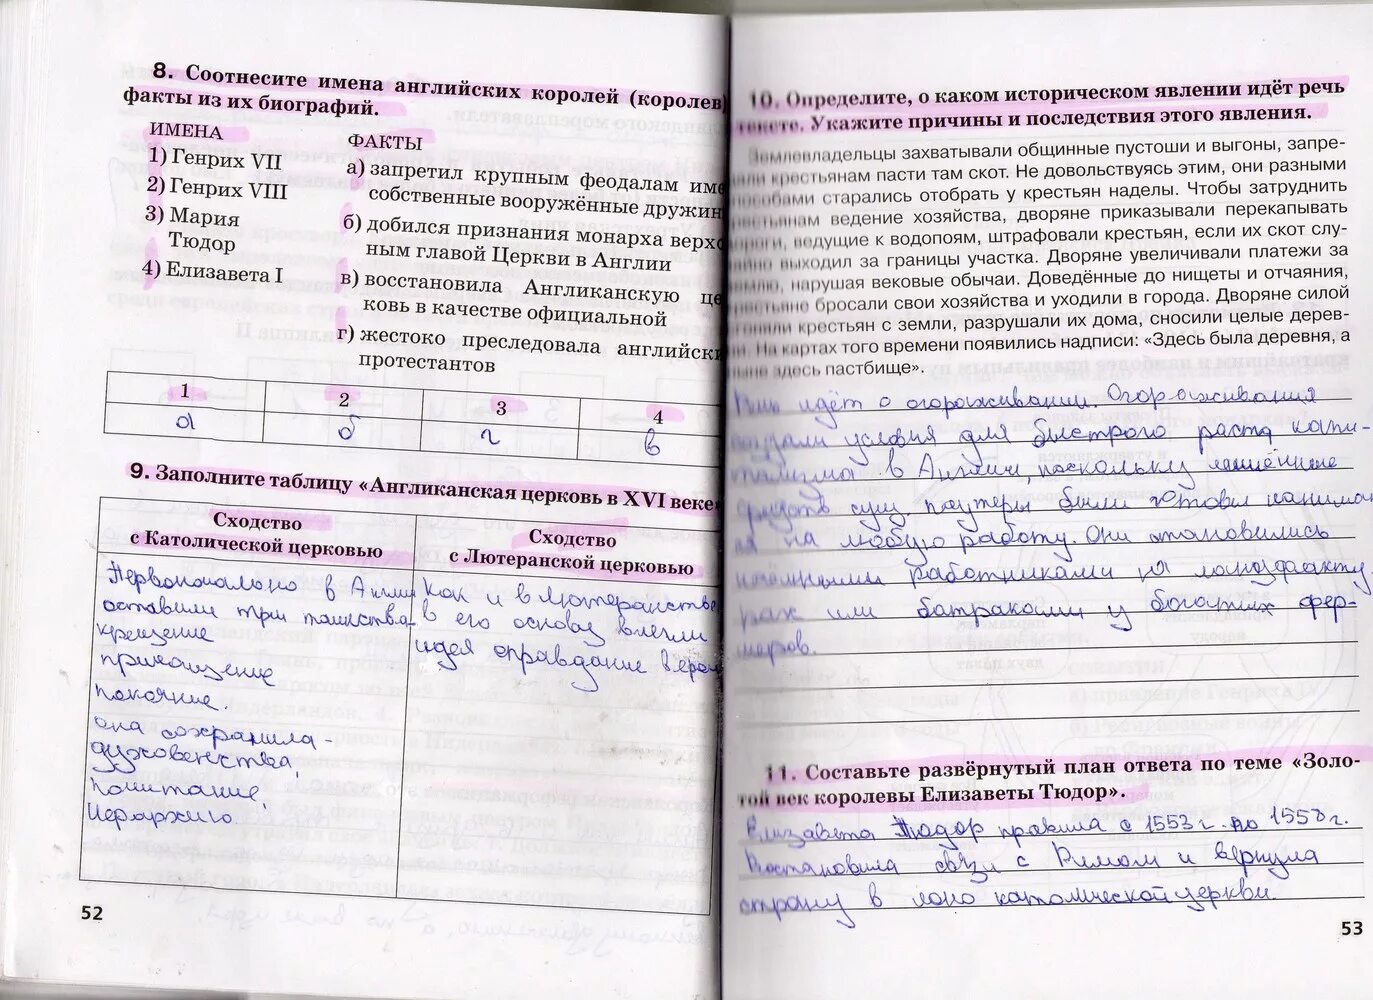 8. Соотнесите имена английских королей (королев)
факты из их биографий.
ИМЕНА
1) Генрих VII
2) Генрих VIII
3) Мария
Тюдор
4) Елизавета I
ФАКТЫ
а) запретил крупным феодалам име
собственные вооружённые дружин
б) добился признания монарха верхо
ным главой Церкви в Англии
в) восстановила Англиканскую це
ковь в качестве официальной
г) жестоко преследовала английски
протестантов
1 2 3 4
а б г в
9. Заполните таблицу «Англиканская церковь в XVI веке»
Сходство
с Католической церковью
Сходство
с Лютеранской церковью
Первоначально в Англии
оставили три таинства-
крещение
причащение
покаяние.
она сохранила -
духовенства,
Почитание,
Иерархию.
Как и в лютеранстве
в его основу влегли
идея оправдание верой
52
10. Определите, о каком историческом явлении идёт речь
тексте. Укажите причины и последствия этого явления.
Землевладельцы захватывали общинные пустоши и выгоны, запре-
крестьянам пасти там скот. Не довольствуясь этим, они разными
способами старались отобрать у крестьян наделы. Чтобы затруднить
крестьянам ведение хозяйства, дворяне приказывали перекапывать
дороги, ведущие к водопоям, штрафовали крестьян, если их скот слу-
выходил за границы участка. Дворяне увеличивали платежи за
землю, нарушая вековые обычаи. Доведённые до нищеты и отчаяния,
крестьяне бросали свои хозяйства и уходили в города. Дворяне силой
сгоняли крестьян с земли, разрушали их дома, сносили целые дерев-
На картах того времени появились надписи: «Здесь была деревня, а
ныне здесь пастбище».
Речь идёт о огораживании. Огораживания
создали условия для быстрого роста капи-
тализма в Англии, поскольку лишённые
средств сущ. паутеры были готовы нанима
на любую работу. Они становились
наёмными работниками на мануфакту
рах или батраками у богатых фер-
меров.
11. Составьте развёрнутый план ответа по теме «Золо-
той век королевы Елизаветы Тюдор».
Елизавета Тюдор правила с 1553 г. по 1558 г.
Востановила связи с Римом и вернула
страну в лоно католической церкви.
53